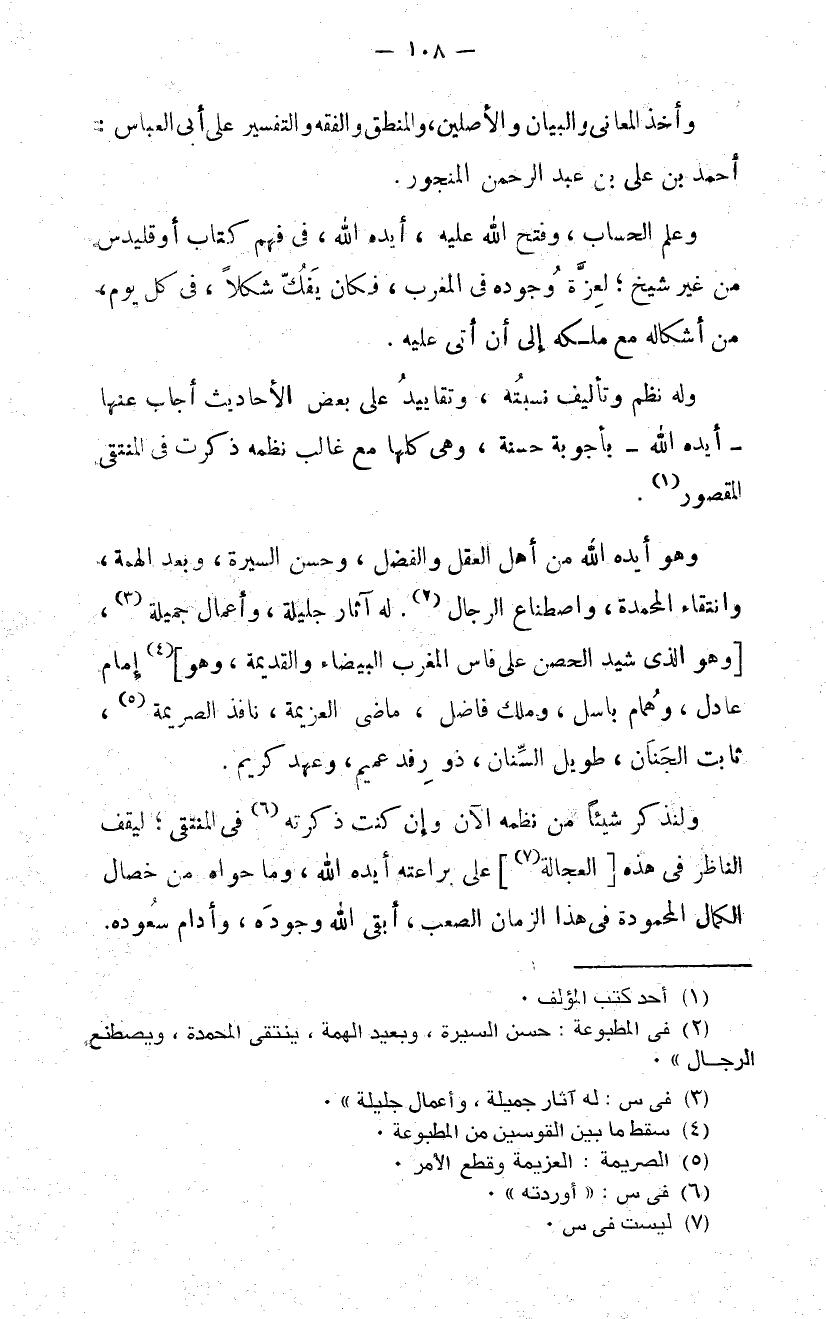 — ١٠٨ —
وأخذ المعانى والبيان والأصلين، والمنطق والفقه والتفسير على أبى العباس :
أحمد بن على بن عبد الرحمن المنجور .
وعلم الحساب ، وفتح الله عليه ، أيده الله ، فى فهم كتاب أوقليدس
من غير شيخ ؛ لعِزَّة وُجوده فى المغرب ، فكان يَفُكّ شكلاً ، فى كل يوم،
من أشكاله مع ملكه إلى أن أتى عليه .
وله نظم وتأليف نسبتُه ، وتقاييدُ على بعض الأحاديث أجاب عنها
ـ أيده الله ـ بأجوبة حسنة ، وهى كلها مع غالب نظمه ذكرت فى المنتقى
المقصور(١) .
وهو أيده الله من أهل العقل والفضل ، وحسن السيرة ، وبعد الهمة ،
وانتقاء المحمدة ، واصطناع الرجال (٢) . له آثار جليلة ، وأعمال جميلة (٣) ،
[وهو الذى شيد الحصن على فاس المغرب البيضاء والقديمة ، وهو](٤) إمام
عادل ، وهُمام باسل ، وملك فاضل ، ماضى العزيمة ، نافذ الصريمة (٥) ،
ثابت الجَنَان ، طويل السِّنان ، ذو رِفد عميم ، وعهد كريم .
ولنذكر شيئاً من نظمه الآن وإن كنت ذكرته (٦) فى المنتقى ؛ ليقف
الناظر فى هذه [ العجالة(٧) ] على براعته أيده الله ، وما حواه من خصال
الكمال المحمودة فى هذا الزمان الصعب ، أبقى الله وجودَه ، وأدام سعُوده.
(١) أحد كتب المؤلف ٠
(٢) فى المطبوعة : حسن السيرة ، وبعيد الهمة ، ينتقى المحمدة ، ويصطنع
الرجال » ٠
(٣) فى س : له آثار جميلة ، وأعمال جليلة » ٠
(٤) سقط ما بين القوسين من المطبوعة ٠
(٥) الصريمة : العزيمة وقطع الأمر ٠
(٦) فى س : « أوردته » ٠
(٧) ليست فى س ٠